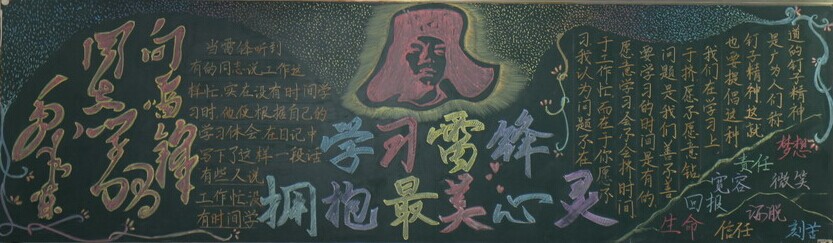 向雷锋
同志学习
毛泽东
当雷锋听到
有的同志说工作这
样忙,实在没有时间学
习时,他便根据自己的
学习体会,在日记中
写下了这样一段话
有些人说
工作忙没
有时间学
学习雷锋
拥抱最美心灵
习我认为问题不在
于工作忙而在于你愿不
愿意学习会不会挤时间
要学习的时间是有的
问题是我们善不善
于挤愿不愿意钻
我们在学习上
也要提倡这种
钉子精神这就
是广为人们称
道的钉子精神
梦想
责任
微笑
宽容
回报
洒脱
生命
信任
刻苦